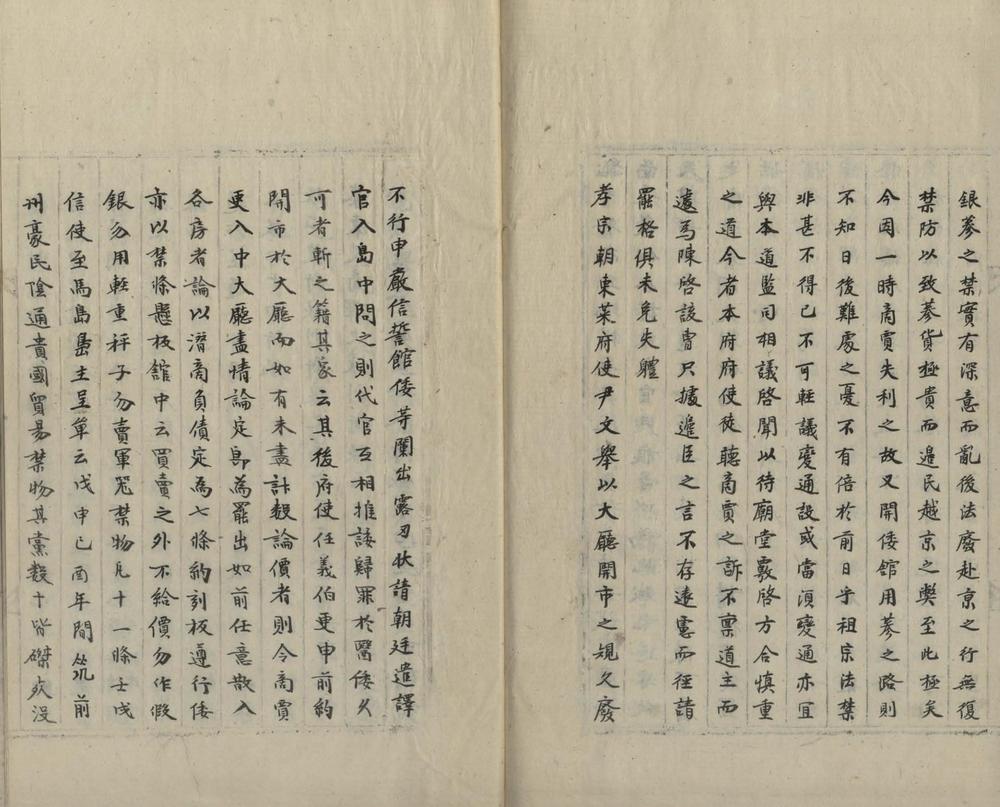 銀蔘之禁實有深意而亂後法廢赴京之行無復
禁防以致蔘貨極貴而邉民越京之獘至此極矣
今因一時商賈失利之故又開倭館用蔘之路則
不知日後難處之憂不有倍於前日乎祖宗法禁
非甚不得已不可輕議變通設或當湏變通亦冝
與本道監司相議啓聞以待廟堂覆啓方合慎重
之道今者本府府使徒聽商賈之訴不禀道主而
遽焉陳啓該曺只據邉臣之言不存遠慮而徑請
罷格俱未免失軆
孝宗朝東萊府使尹文舉以大廳開市之規久廢
不行申嚴信誓館倭等闌出露刃状請朝廷遣譯
官入島中問之則代官互相推諉歸罪於醫倭久
可者斬之籍其家云其後府使任義伯更申前約
開市於大廳而如有未盡計數論價者則令商賈
更入中大廳盡情論定即為罷出如前任意散入
各房者論以潛商負債定為七條約刻板遵行倭
亦以禁條懸板舘中云買賣之外不給價勿作假
銀勿用輕重秤子勿賣軍器禁物凡十一條壬戌
信使至馬島島主呈單云戊申己酉年間筑前
州豪民陰通貴國貿易禁物其黨數十皆磔炙沒